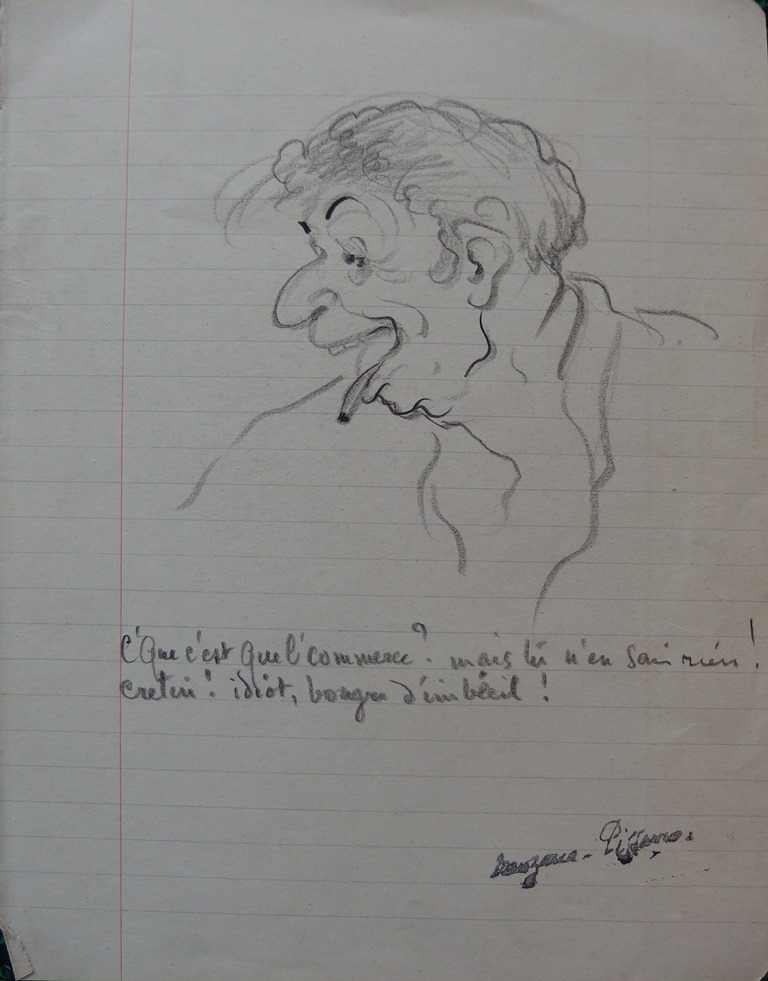 C'Que c'est que l'commerce? mais tu n'en sai rien!
cretin! idiot, bougre d'imbécil!
Manzana-Pissarro.